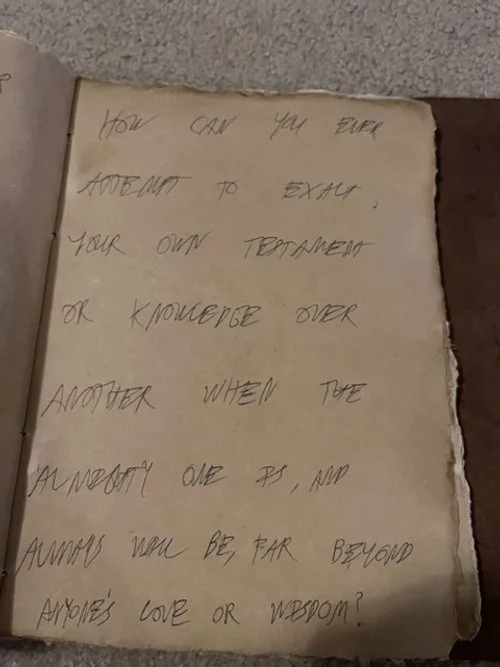 HOW CAN YOU EVER
ATTEMPT TO EXALT
YOUR OWN TESTAMENT
OR KNOWLEDGE OVER
ANOTHER WHEN THE
ALMIGHTY ONE IS, AND
ALWAYS WILL BE, FAR BEYOND
ANYONE'S LOVE OR WISDOM?